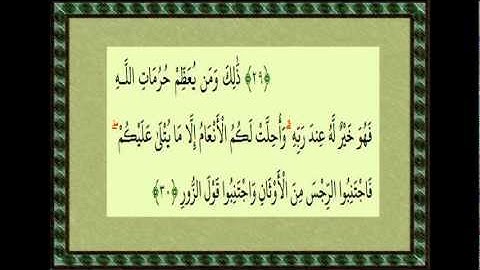 ﴿٢٩﴾ ذَٰلِكَ وَمَن يُعَظِّمْ حُرُمَاتِ اللَّـهِ
فَهُوَ خَيْرٌ لَّهُ عِندَ رَبِّهِ ۗ وَأُحِلَّتْ لَكُمُ الْأَنْعَامُ إِلَّا مَا يُتْلَىٰ عَلَيْكُمْ ۖ
فَاجْتَنِبُوا الرِّجْسَ مِنَ الْأَوْثَانِ وَاجْتَنِبُوا قَوْلَ الزُّورِ ﴿٣٠﴾